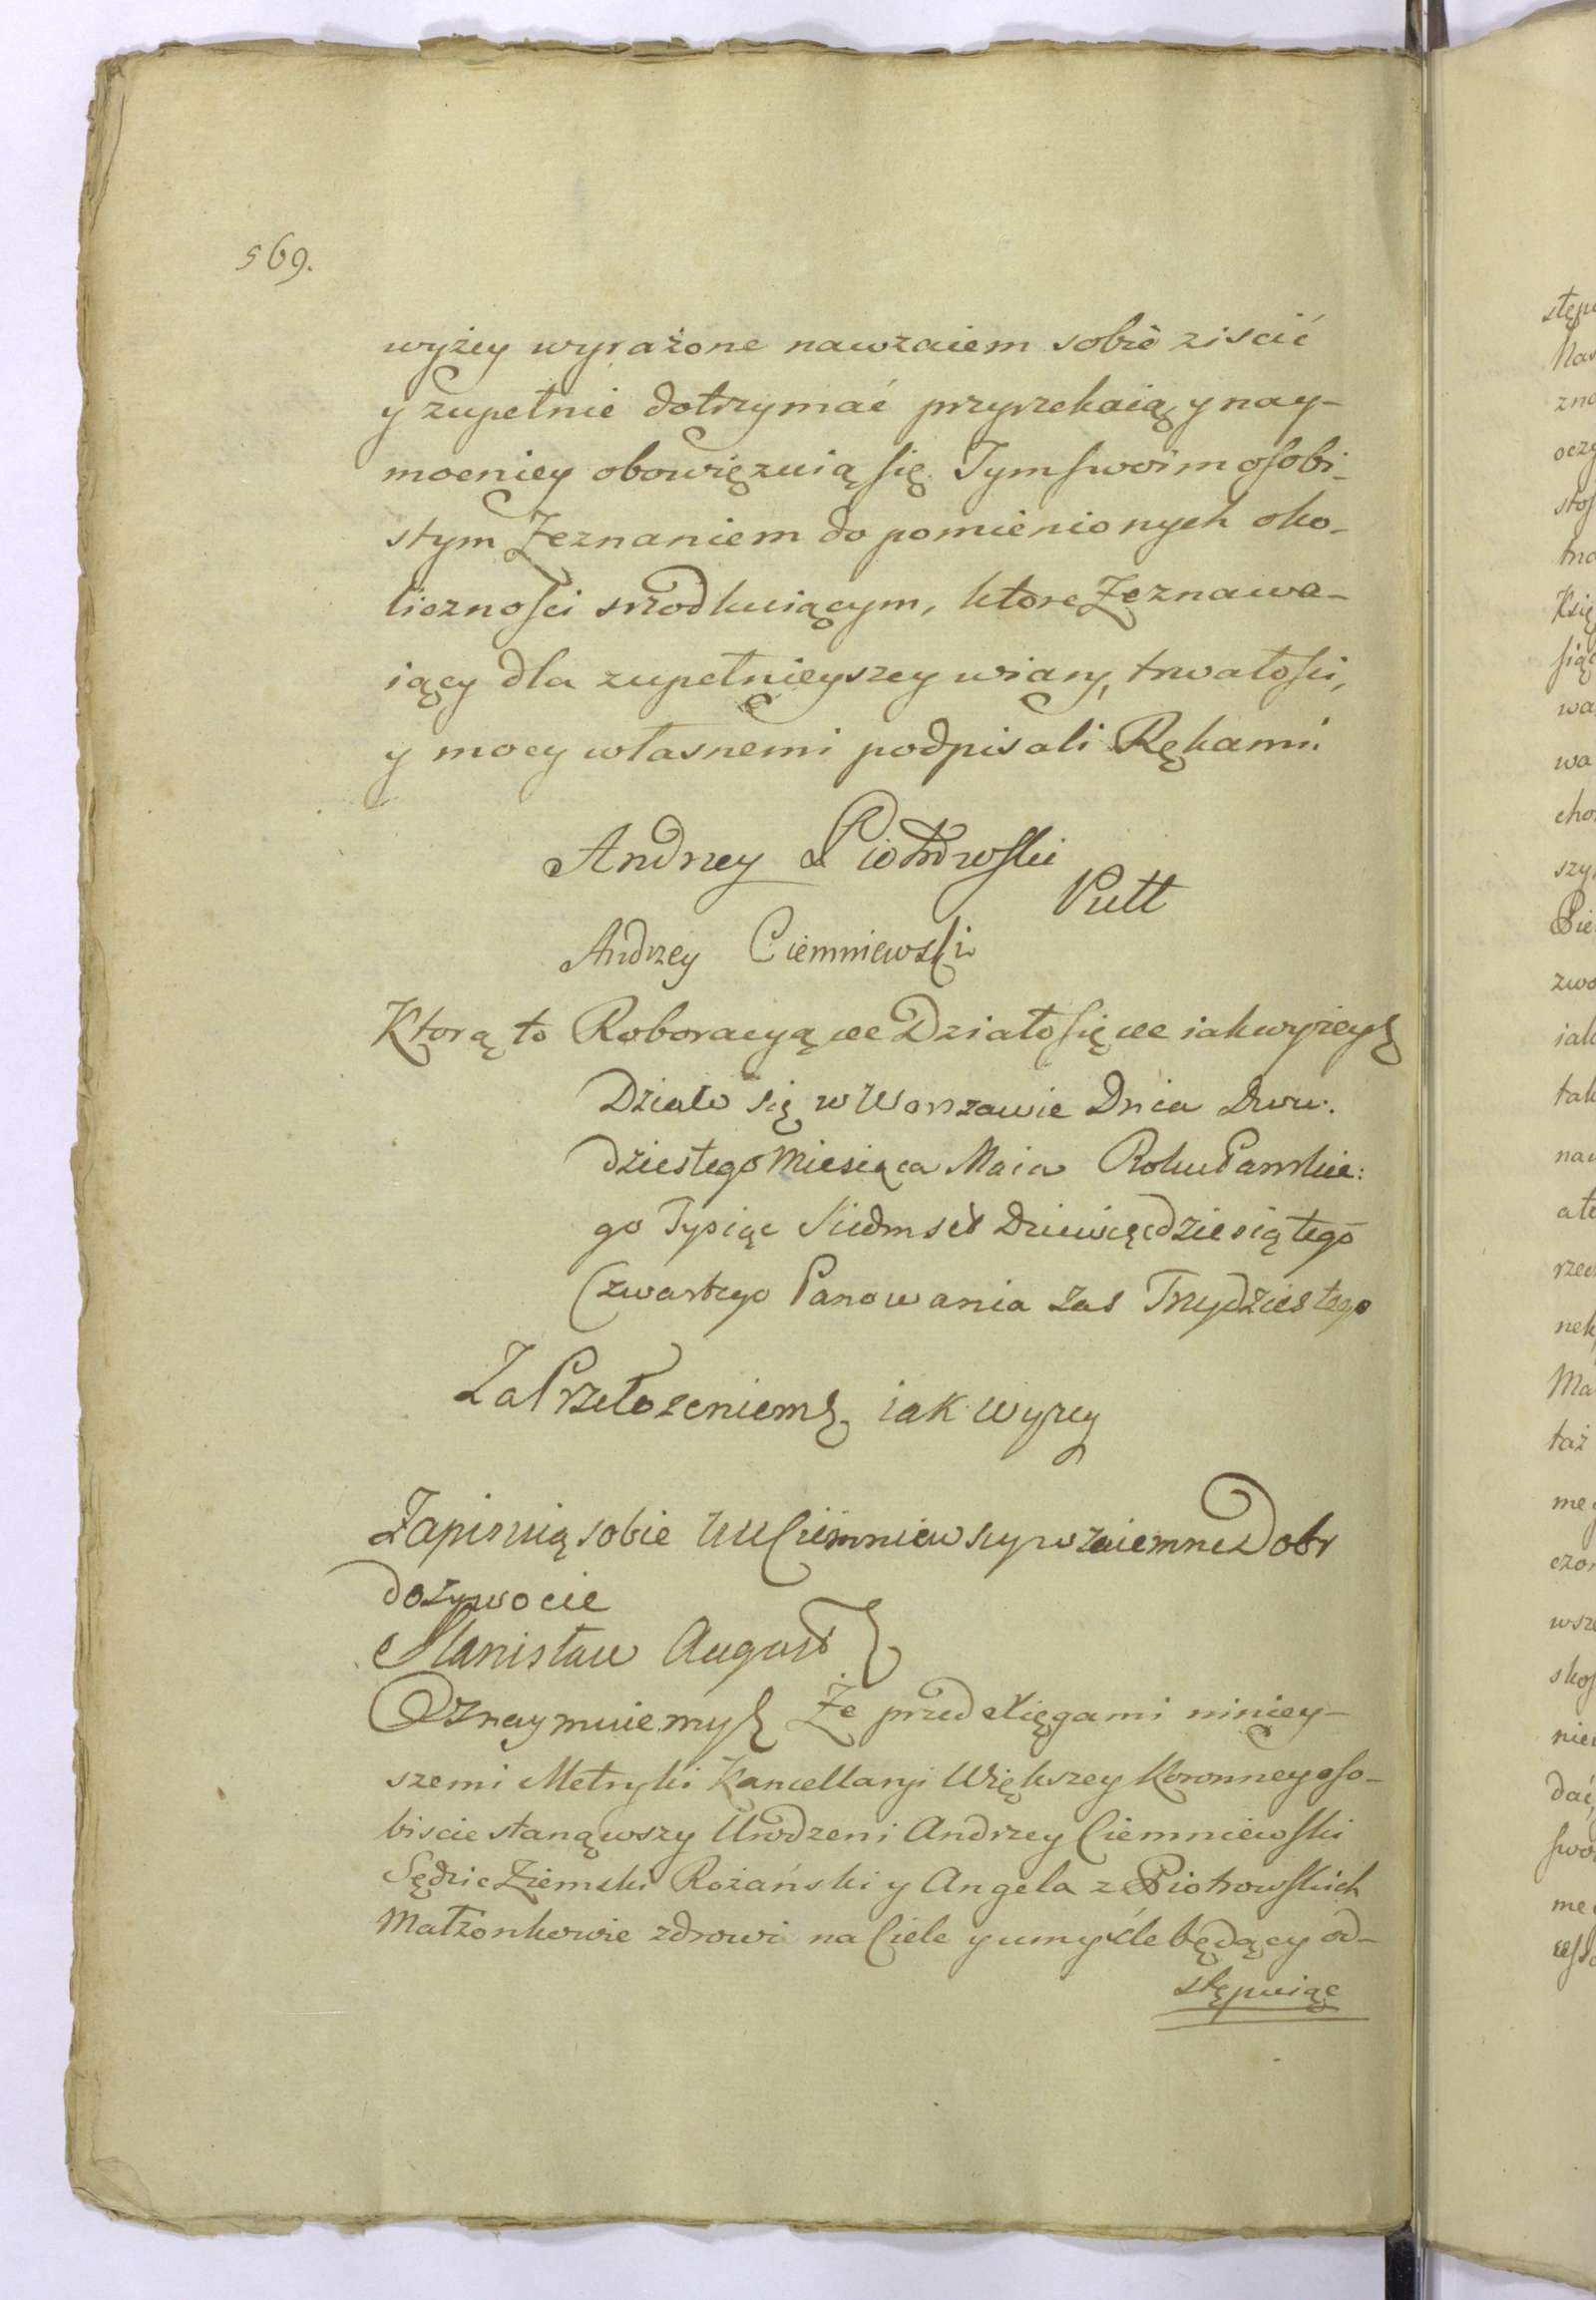 569.
wyżey wyrażone nawzaiem sobie ziscić
y zupełnie dotrzymać przyrzekaią y nay-
mocniey obowięzuią się. Tym swoim osobi-
stym Zeznaniem do pomienionych oko-
liczności srzodkuiącym, ktore Zeznawa-
iący dla zupełnieyszey wiary, trwałości,
y mocy własnemi podpisali Rękami.
Andrzey Piotrowski
Pułł
Andrzey Ciemniewski
Ktorą to Roboracyą &c Działo się &c iak wyżey
Działo się w Warszawie Dnia Dwu:
dziestego Miesiąca Maia Roku Pańskie:
go Tysiąc Siedmset Dziewięćdziesiątego
Czwartego Panowania zas Trzydziestego
Za Przełożeniem iak wyżey
Zapisuią sobie UU Ciemniewscy wzaiemne Dobr
dożywocie
Stanisław August
Oznaymuiemy Że przed Xięgami niniey-
szemi Metryki Kancellaryi Większey Koronney oso-
biscie stanąwszy Urodzeni Andrzey Ciemniewski
Sędzic Ziemski Rożański y Angela z Piotrowskich
Małżonkowie zdrowi na Ciele y umyśle będący od-
stępuiąc
stępu
zna
wa
wa
szy
zwo
tak
nek
Ma
taż
wsze
nie
dać